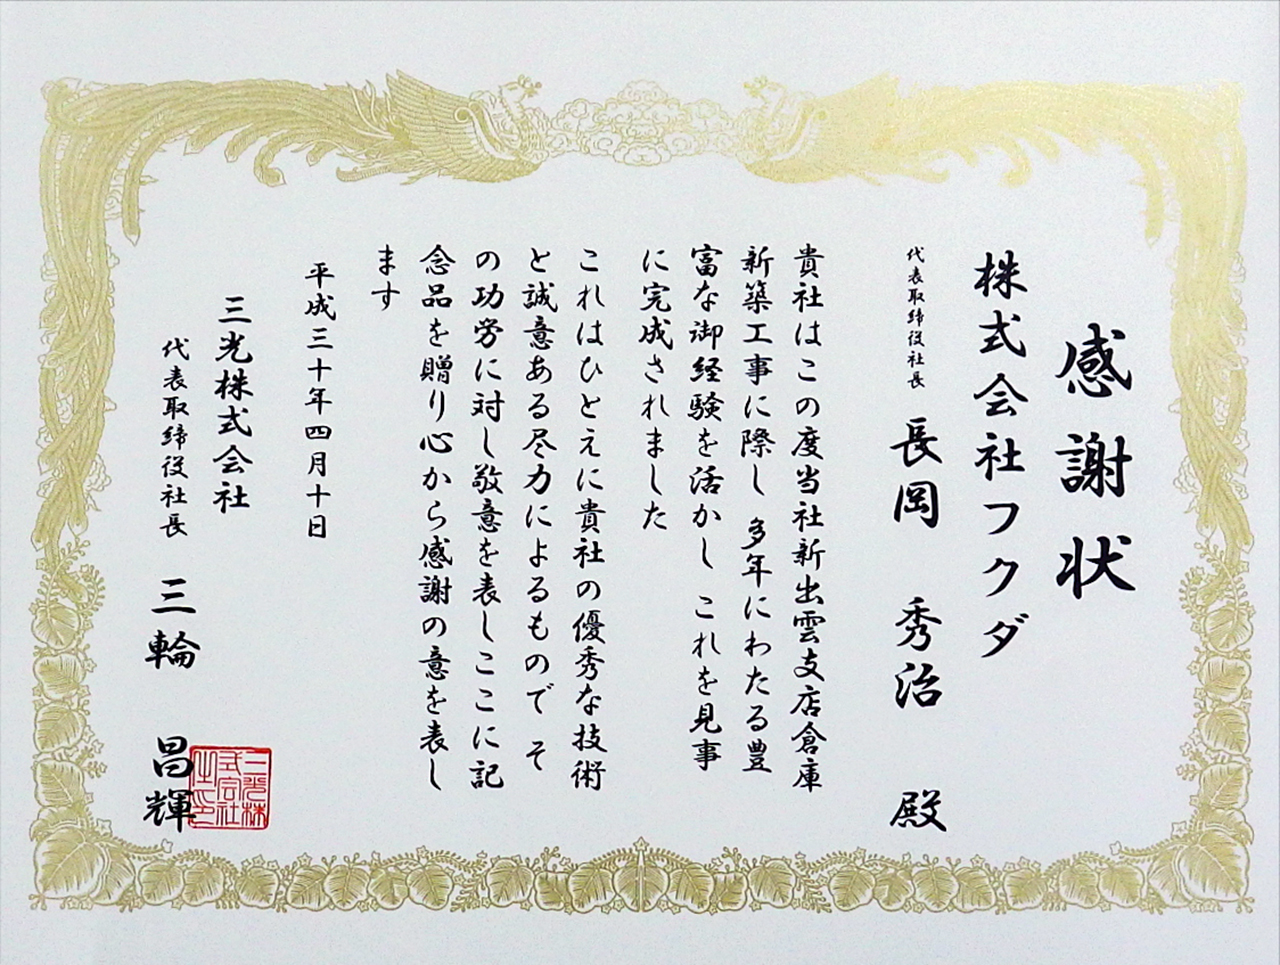 感謝状
株式会社フクダ
代表取締役社長 長岡 秀治 殿
貴社はこの度当社新出雲支店倉庫
新築工事に際し 多年にわたる豊
富な御経験を活かし これを見事
に完成されました
これはひとえに貴社の優秀な技術
と誠意ある尽力によるもので そ
の功労に対し敬意を表しここに記
念品を贈り心から感謝の意を表し
ます
平成三十年四月十日
三光株式会社
代表取締役社長 三輪 昌輝
三光株
式会社
之印